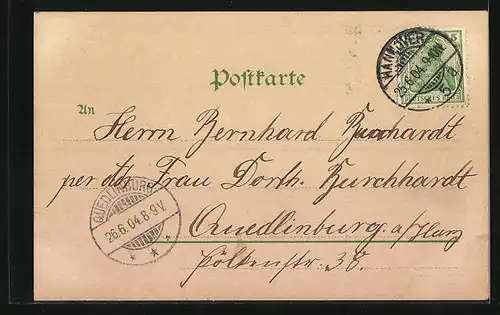 Postkarte
5
DEUTSCHES REICH
HANNOVER
25.6.04.9-10N
5 a
An
Herrn Bernhard Burchardt
per adr. Frau Dorth. Burchhardt
Quedlinburg a/Harz
Pölkenstr. 38.
QUEDLINBURG
26.6.04.8-9V.